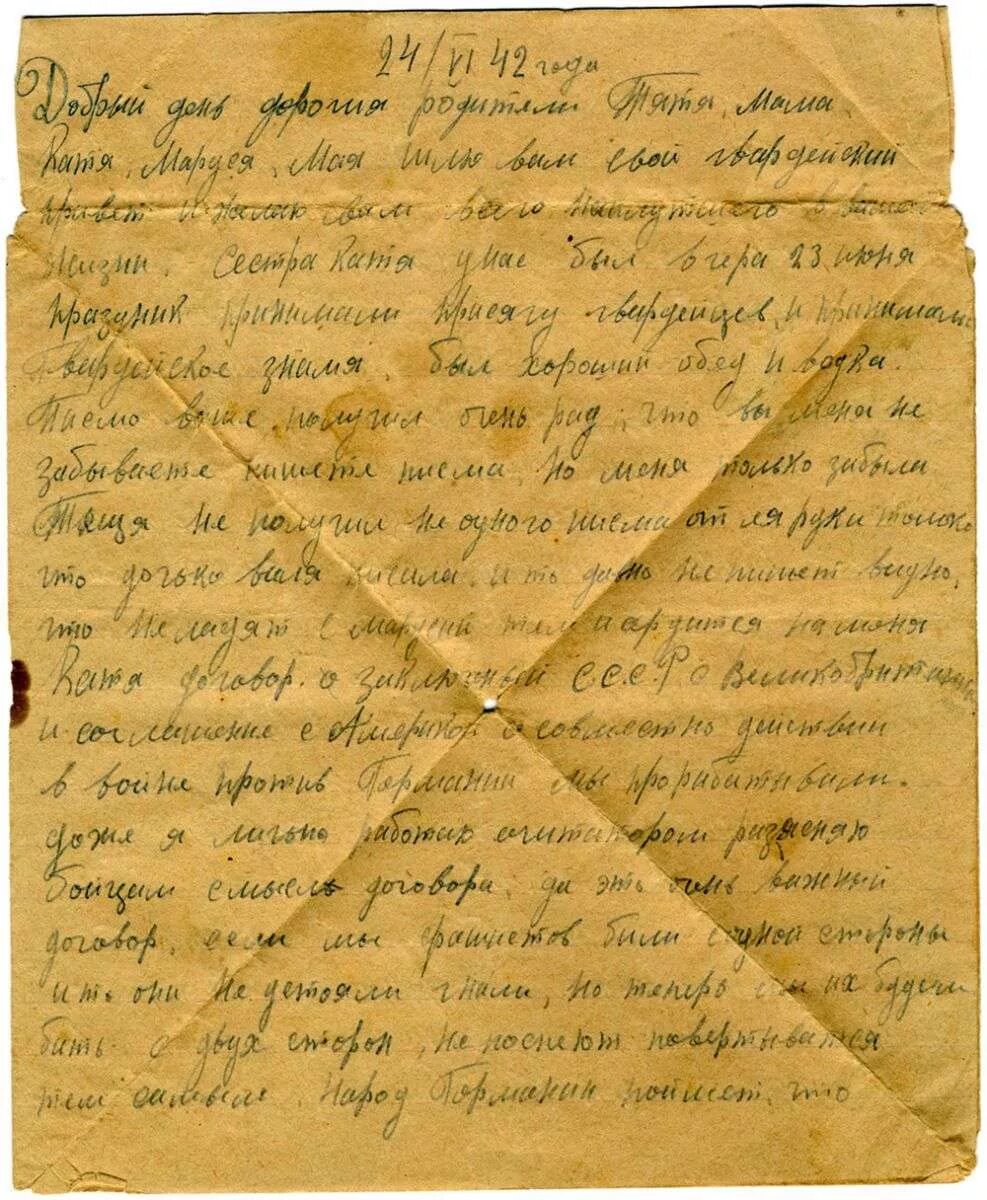 24/VI 42 года
Добрый день дорогия родители Тятя, мама,
Катя, Маруся, Мая шлю вам свой гвардейский
привет и желаю вам всего наилутшего в вашей
жизни. Сестра Катя унас был вчера 23 июня
празник принимали присягу гвардейцев, и принимали
Гвардейское знамя. был хороший обед и водка.
Писмо ваше получил очень рад, что вы меня не
забываете пишете писма, но меня только забыла
Теща не получил не одного писма от ля руки только
что дочько валя писала. и то давно не пишет видно,
что не ладят с марусий тем и
Катя договор. о заключеный С.С.С.Р с Великобританией
и соглашение с Америкой о совместно действии
в войне против Германий мы прорабатывали.
даже я лично работаю агитатором разясняю
бойцам смысл договора, да эть очень важный
договор, если мы фашистов били содной стороны
и то они не гнали, но теперь мы их будем
бить с двух сторон, не поспеют повертыватся
тем самым. Народ Германии поймет, что